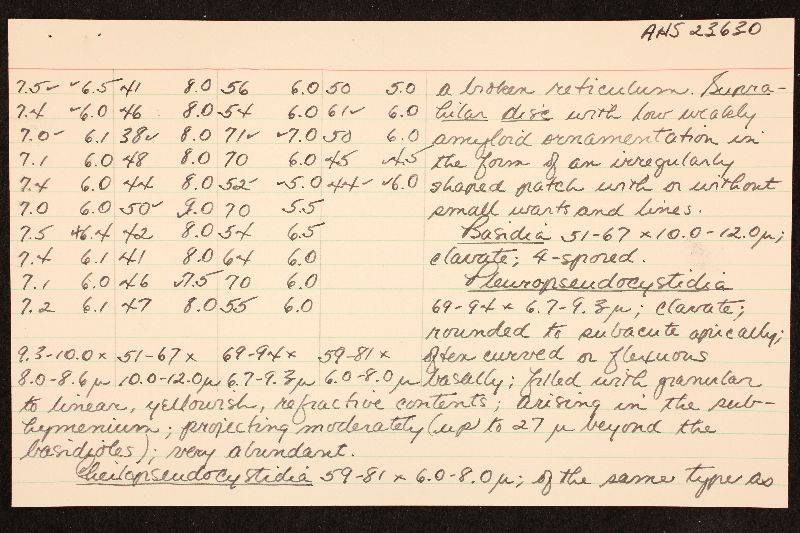 AHS 23630
7.5✓ ✓6.5 41 8.0 56 6.0 50 5.0 a broken reticulum. Supra-
7.4 ✓6.0 46 8.0 54 6.0 61✓ 6.0 hilar disc with low weakly
7.0✓ 6.1 38✓ 8.0 71✓ ✓7.0 50 6.0 amyloid ornamentation in
7.1 6.0 48 8.0 70 6.0 45 ✓4.5 the form of an irregularly
7.4 6.0 44 8.0 52✓ ✓5.0 44✓ ✓6.0 shaped patch with or without
7.0 6.0 50✓ 8.0 70 5.5 small warts and lines.
7.5 6.4 42 8.0 54 6.5 Basidia 51-67 x 10.0-12.0µ;
7.4 6.1 41 8.0 64 6.0 clavate; 4-spored.
7.1 6.0 46 ✓7.5 70 6.0 Pleuropseudocystidia
7.2 6.1 47 8.0 55 6.0 69-94 x 6.7-9.3µ; clavate;
rounded to subacute apically;
9.3-10.0 x 51-67 x 69-94 x 59-81 x often curved or flexuous
8.0-8.6µ 10.0-12.0µ 6.7-9.3µ 6.0-8.0µ basally; filled with granular
to linear, yellowish, refractive contents; arising in the sub-
hymenium; projecting moderately (up to 27 µ beyond the
basidioles); very abundant.
Cheilopseudocystidia 59-81 x 6.0-8.0µ; of the same type as